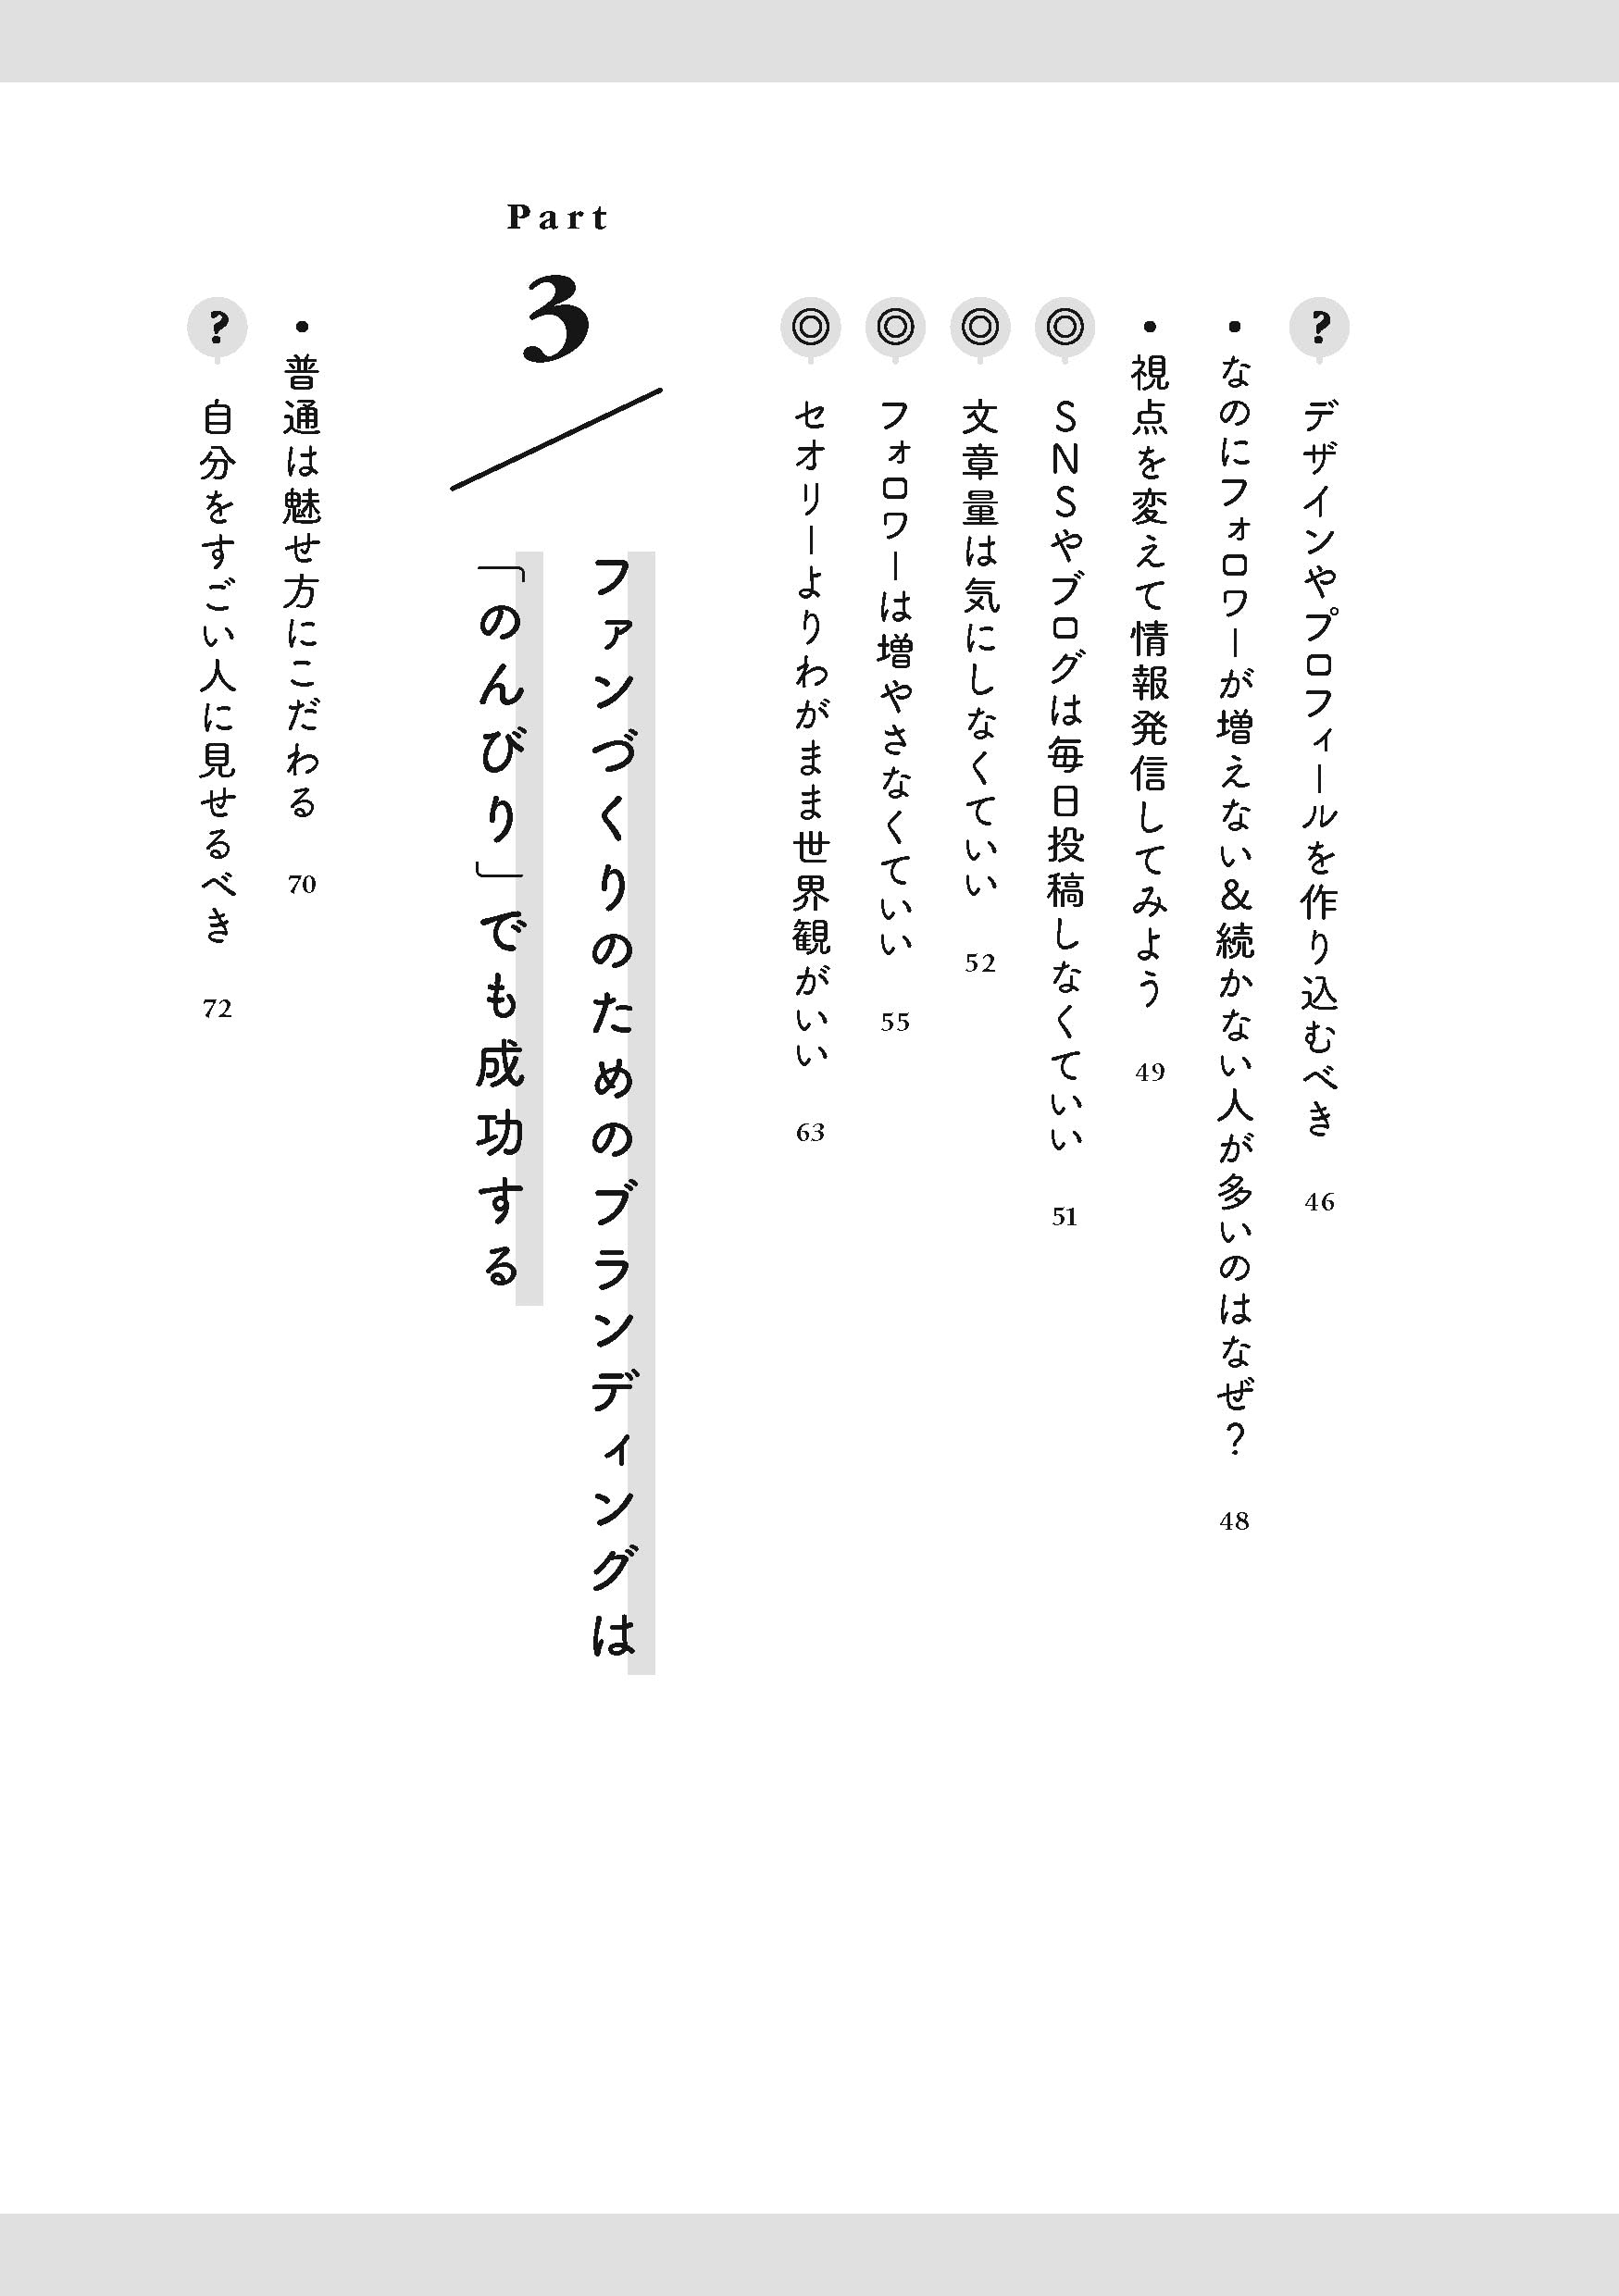 ? デザインやプロフィールを作り込むべき 46
・なのにフォロワーが増えない&続かない人が多いのはなぜ? 48
・視点を変えて情報発信してみよう 49
◎ SNSやブログは毎日投稿しなくていい 51
◎ 文章量は気にしなくていい 52
◎ フォロワーは増やさなくていい 55
◎ セオリーよりわがまま世界観がいい 63
Part
3
ファンづくりのためのブランディングは
「のんびり」でも成功する
・普通は魅せ方にこだわる 70
? 自分をすごい人に見せるべき 72